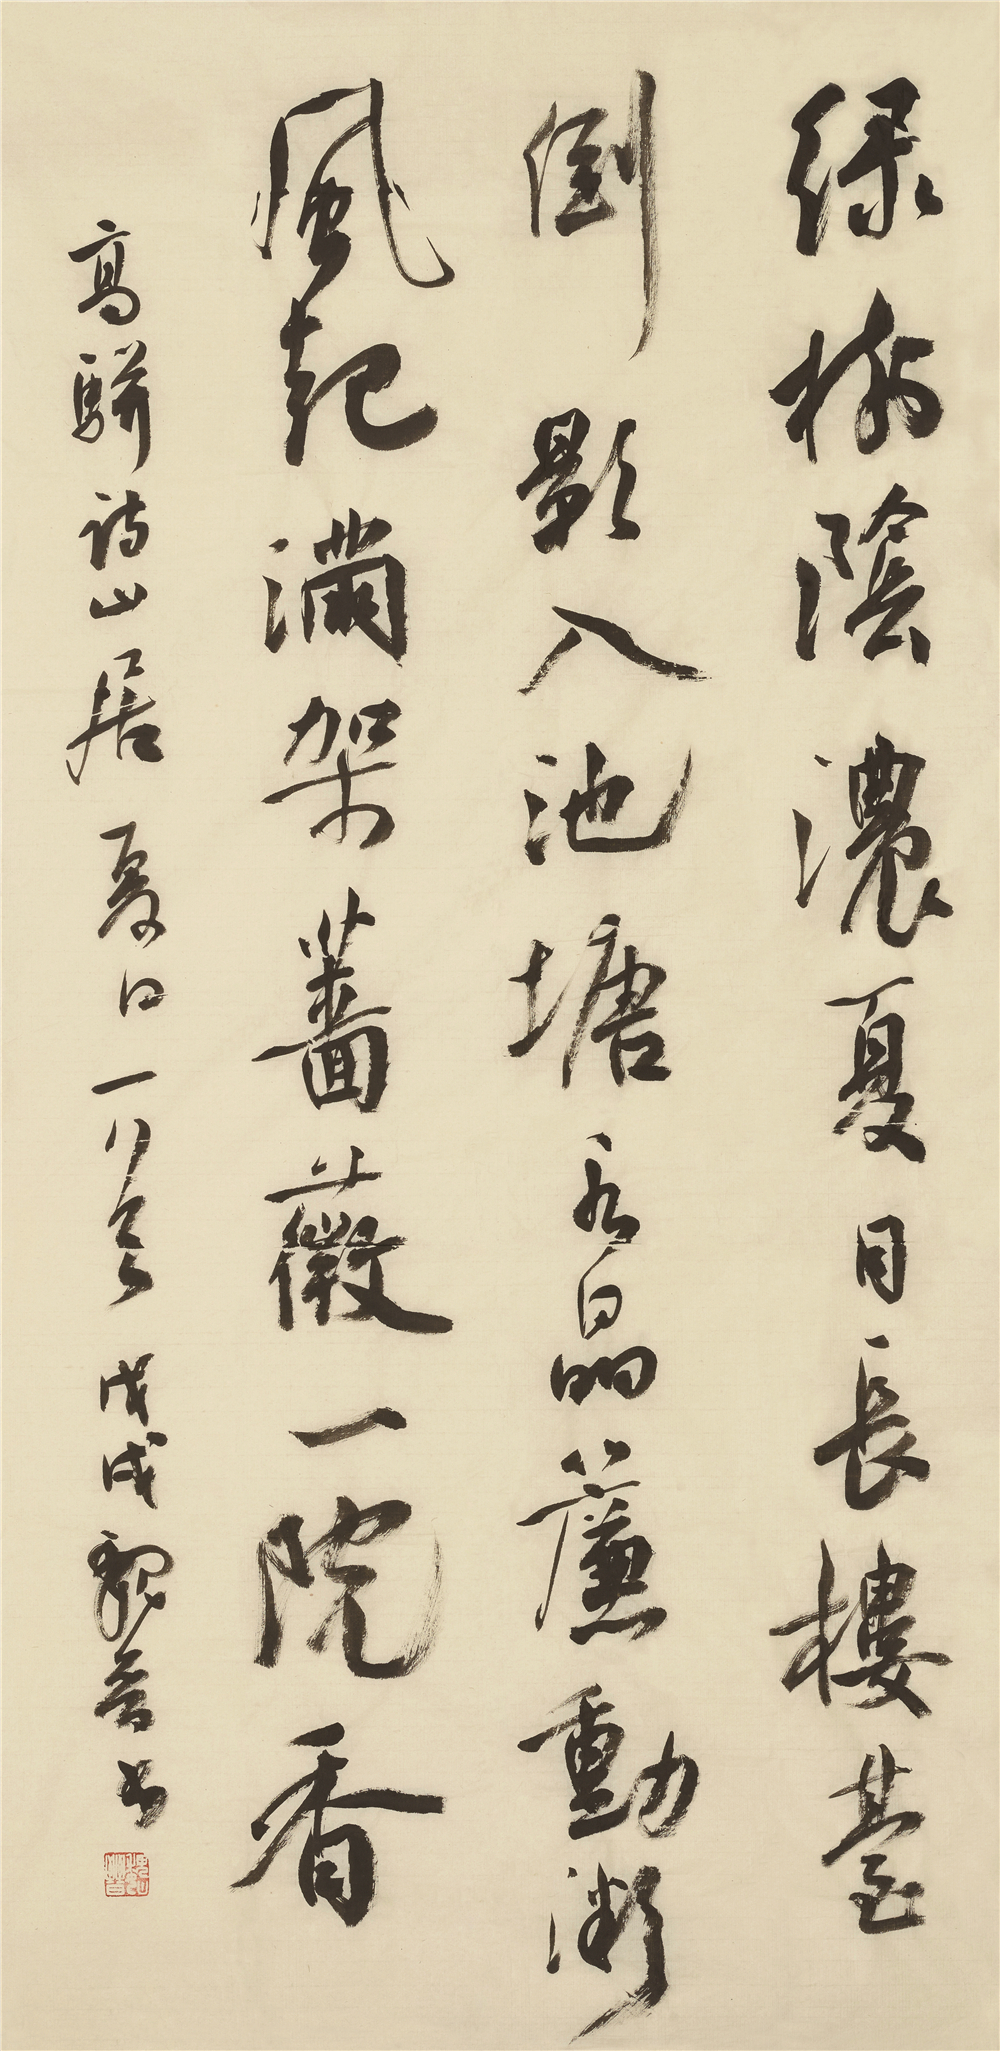 緑樹陰濃夏日長樓臺
倒影入池塘水晶簾動微
風起滿架薔薇一院香
高駢詩山居夏日一首 戊戌魏書